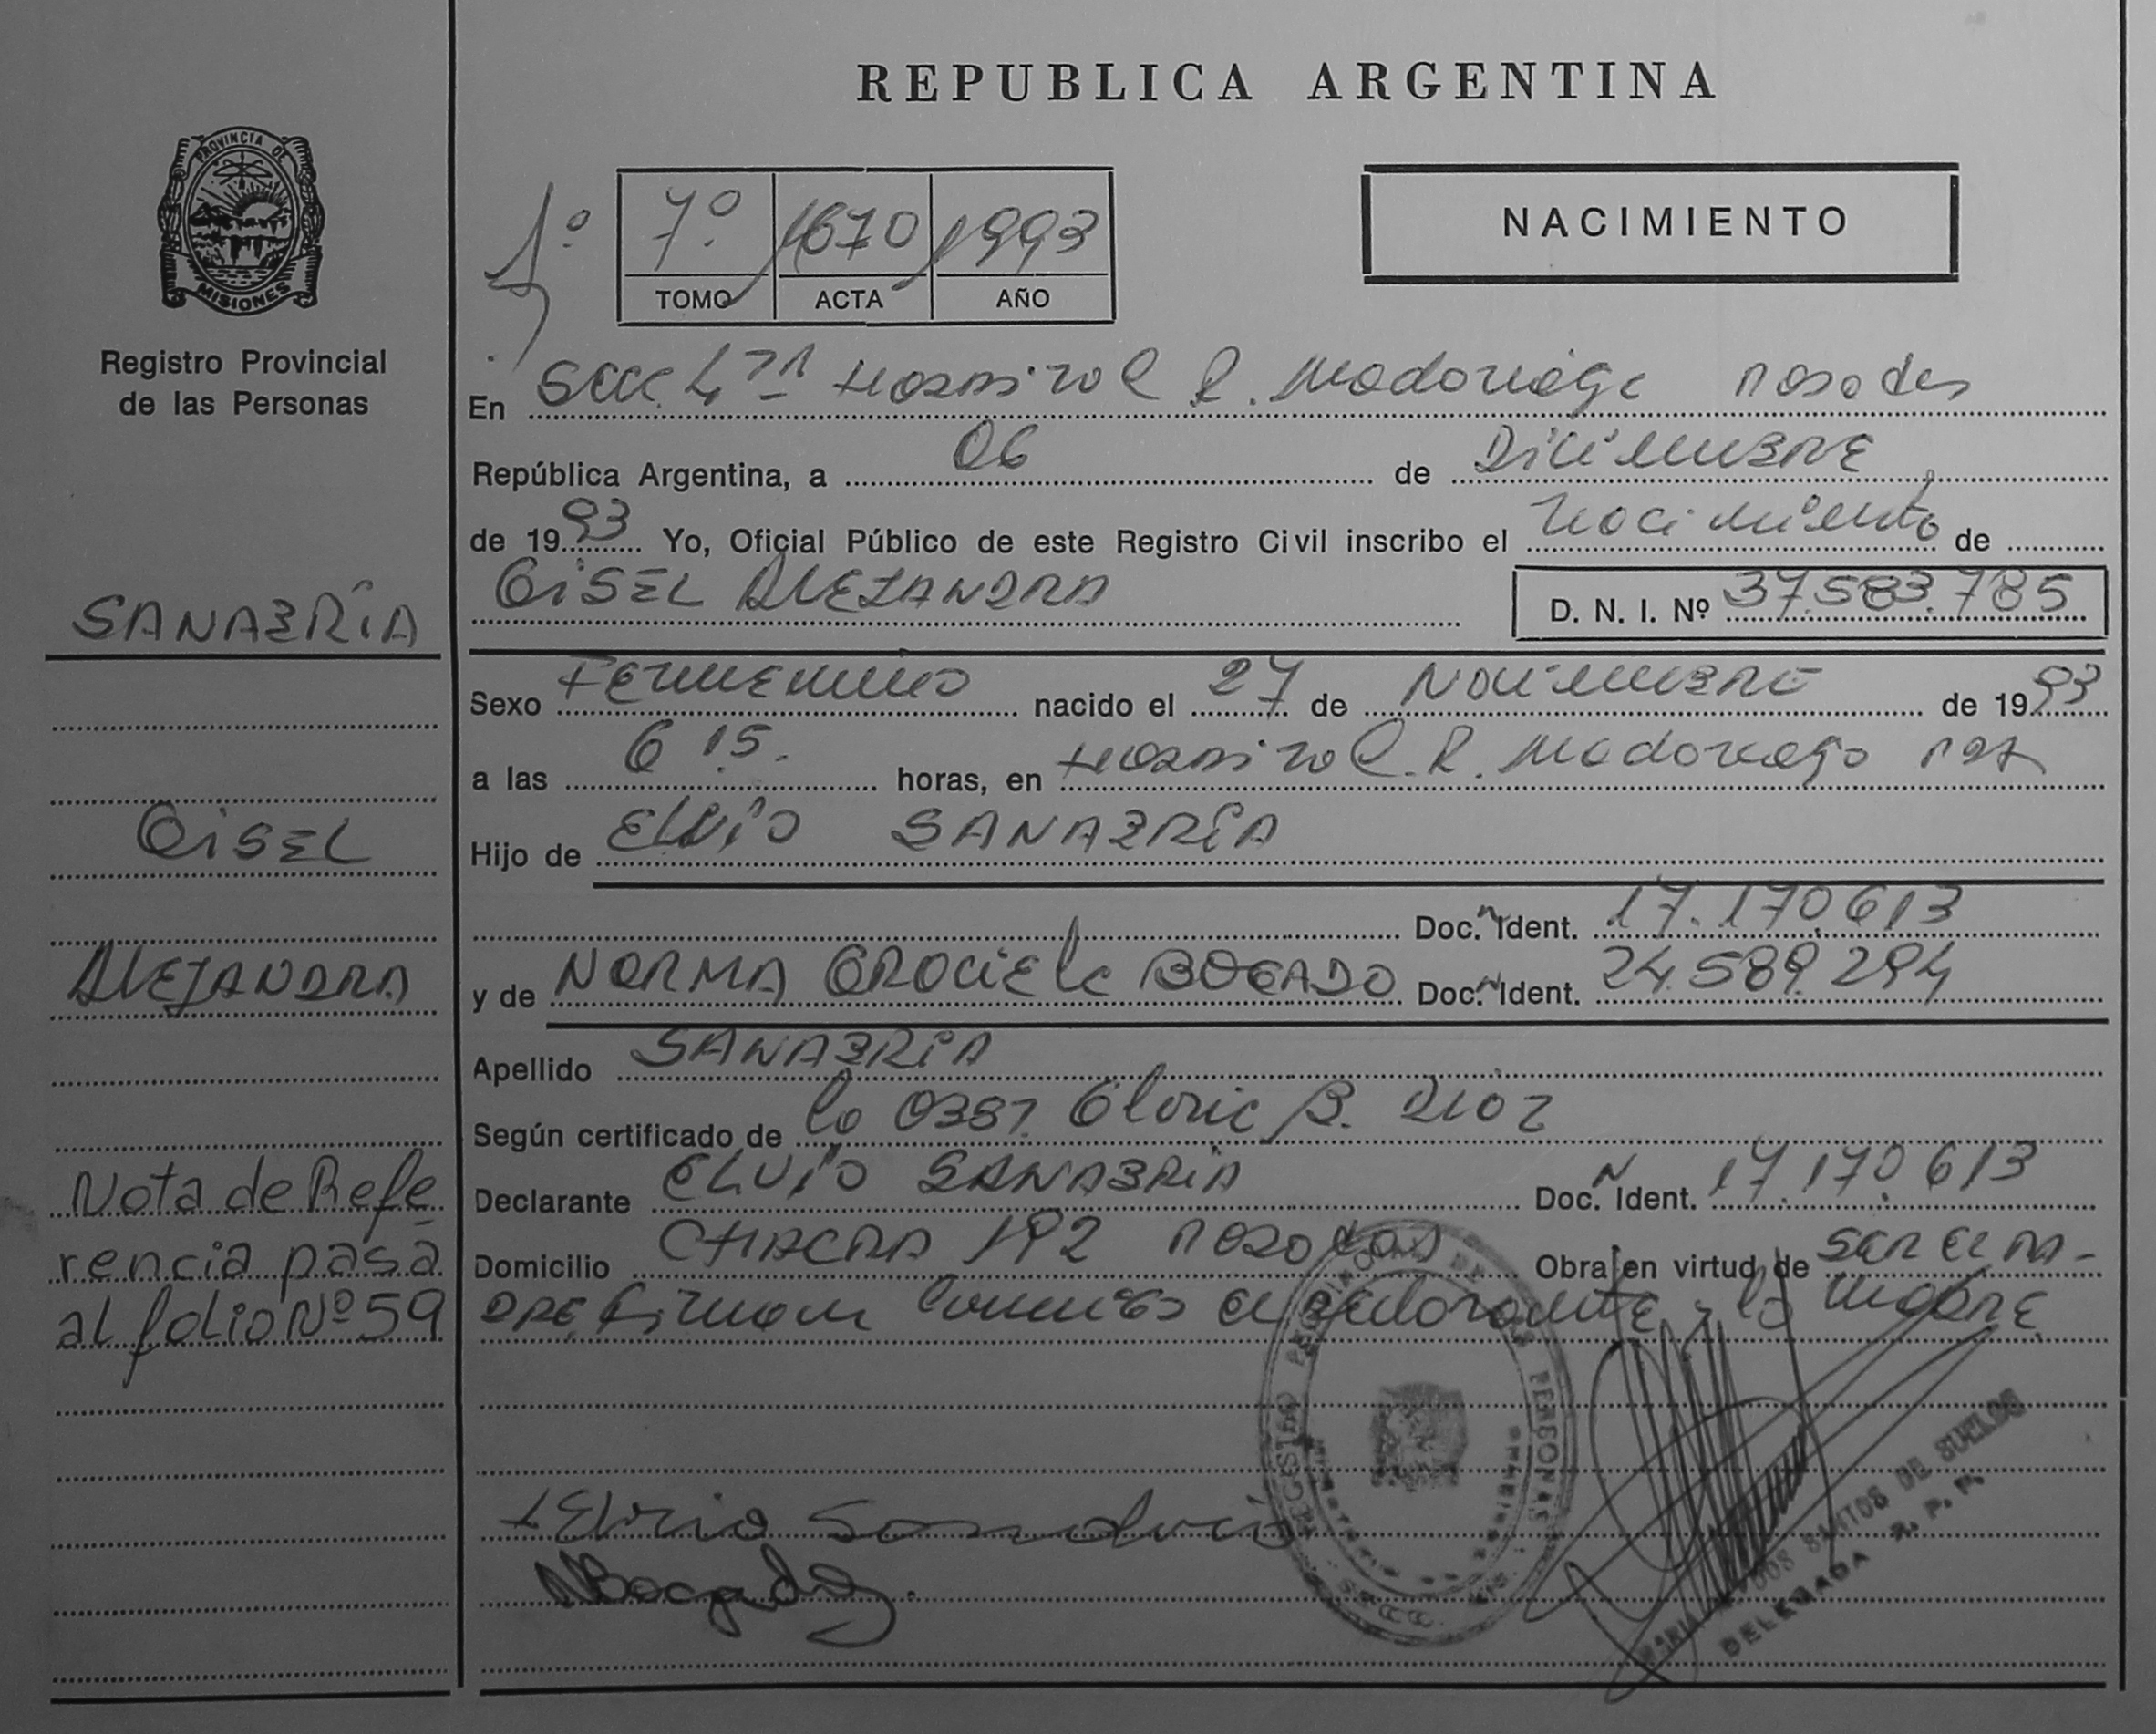 REPUBLICA ARGENTINA
PROVINCIA DE
MISIONES
Registro Provincial
de las Personas
1º
7º 1670 1993
TOMO ACTA AÑO
NACIMIENTO
En Secc. 4ta Hospital R. Madariaga Posadas
República Argentina, a 06 de Diciembre
de 1993 Yo, Oficial Público de este Registro Civil inscribo el Nacimiento de
GISEL ALEJANDRA D. N. I. Nº 37.583.785
SANABRÍA
Sexo Femenino nacido el 27 de Noviembre de 1993
a las 6 15. horas, en Hospital R. Madariaga
GISEL
Hijo de ELVIO SANABRÍA
Doc. N Ident. 17.170.613
ALEJANDRA
y de NORMA GRACIELA BOGADO Doc. N Ident. 24.589.294
Apellido SANABRIA
Según certificado de la Obst. Gloria B.
Nota de Refe
rencia pasa
al folio Nº 59
Declarante ELVIO SANABRIA Doc. N Ident. 17.170.613
Domicilio CHACRA 192 Posadas Obra en virtud de ser el Pa-
dre, firman el declarante y la Madre
REGISTRO PERSONAS
Elvio Sanabria
NBogado
DOS SANTOS DE SUELDO
DELEGADA R. P. P.